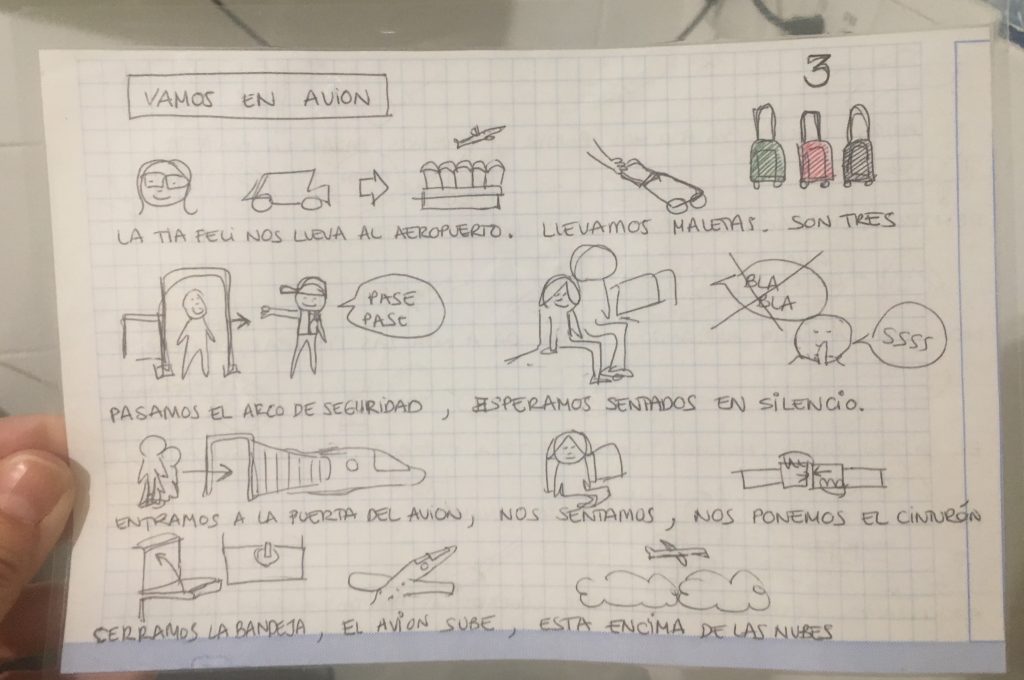 VAMOS EN AVION
3
LA TIA FELI NOS LLEVA AL AEROPUERTO. LLEVAMOS MALETAS. SON TRES
PASE
PASE
BLA
BLA
SSSS
PASAMOS EL ARCO DE SEGURIDAD, ESPERAMOS SENTADOS EN SILENCIO.
ENTRAMOS A LA PUERTA DEL AVION, NOS SENTAMOS, NOS PONEMOS EL CINTURÓN
CERRAMOS LA BANDEJA, EL AVION SUBE, ESTA ENCIMA DE LAS NUBES